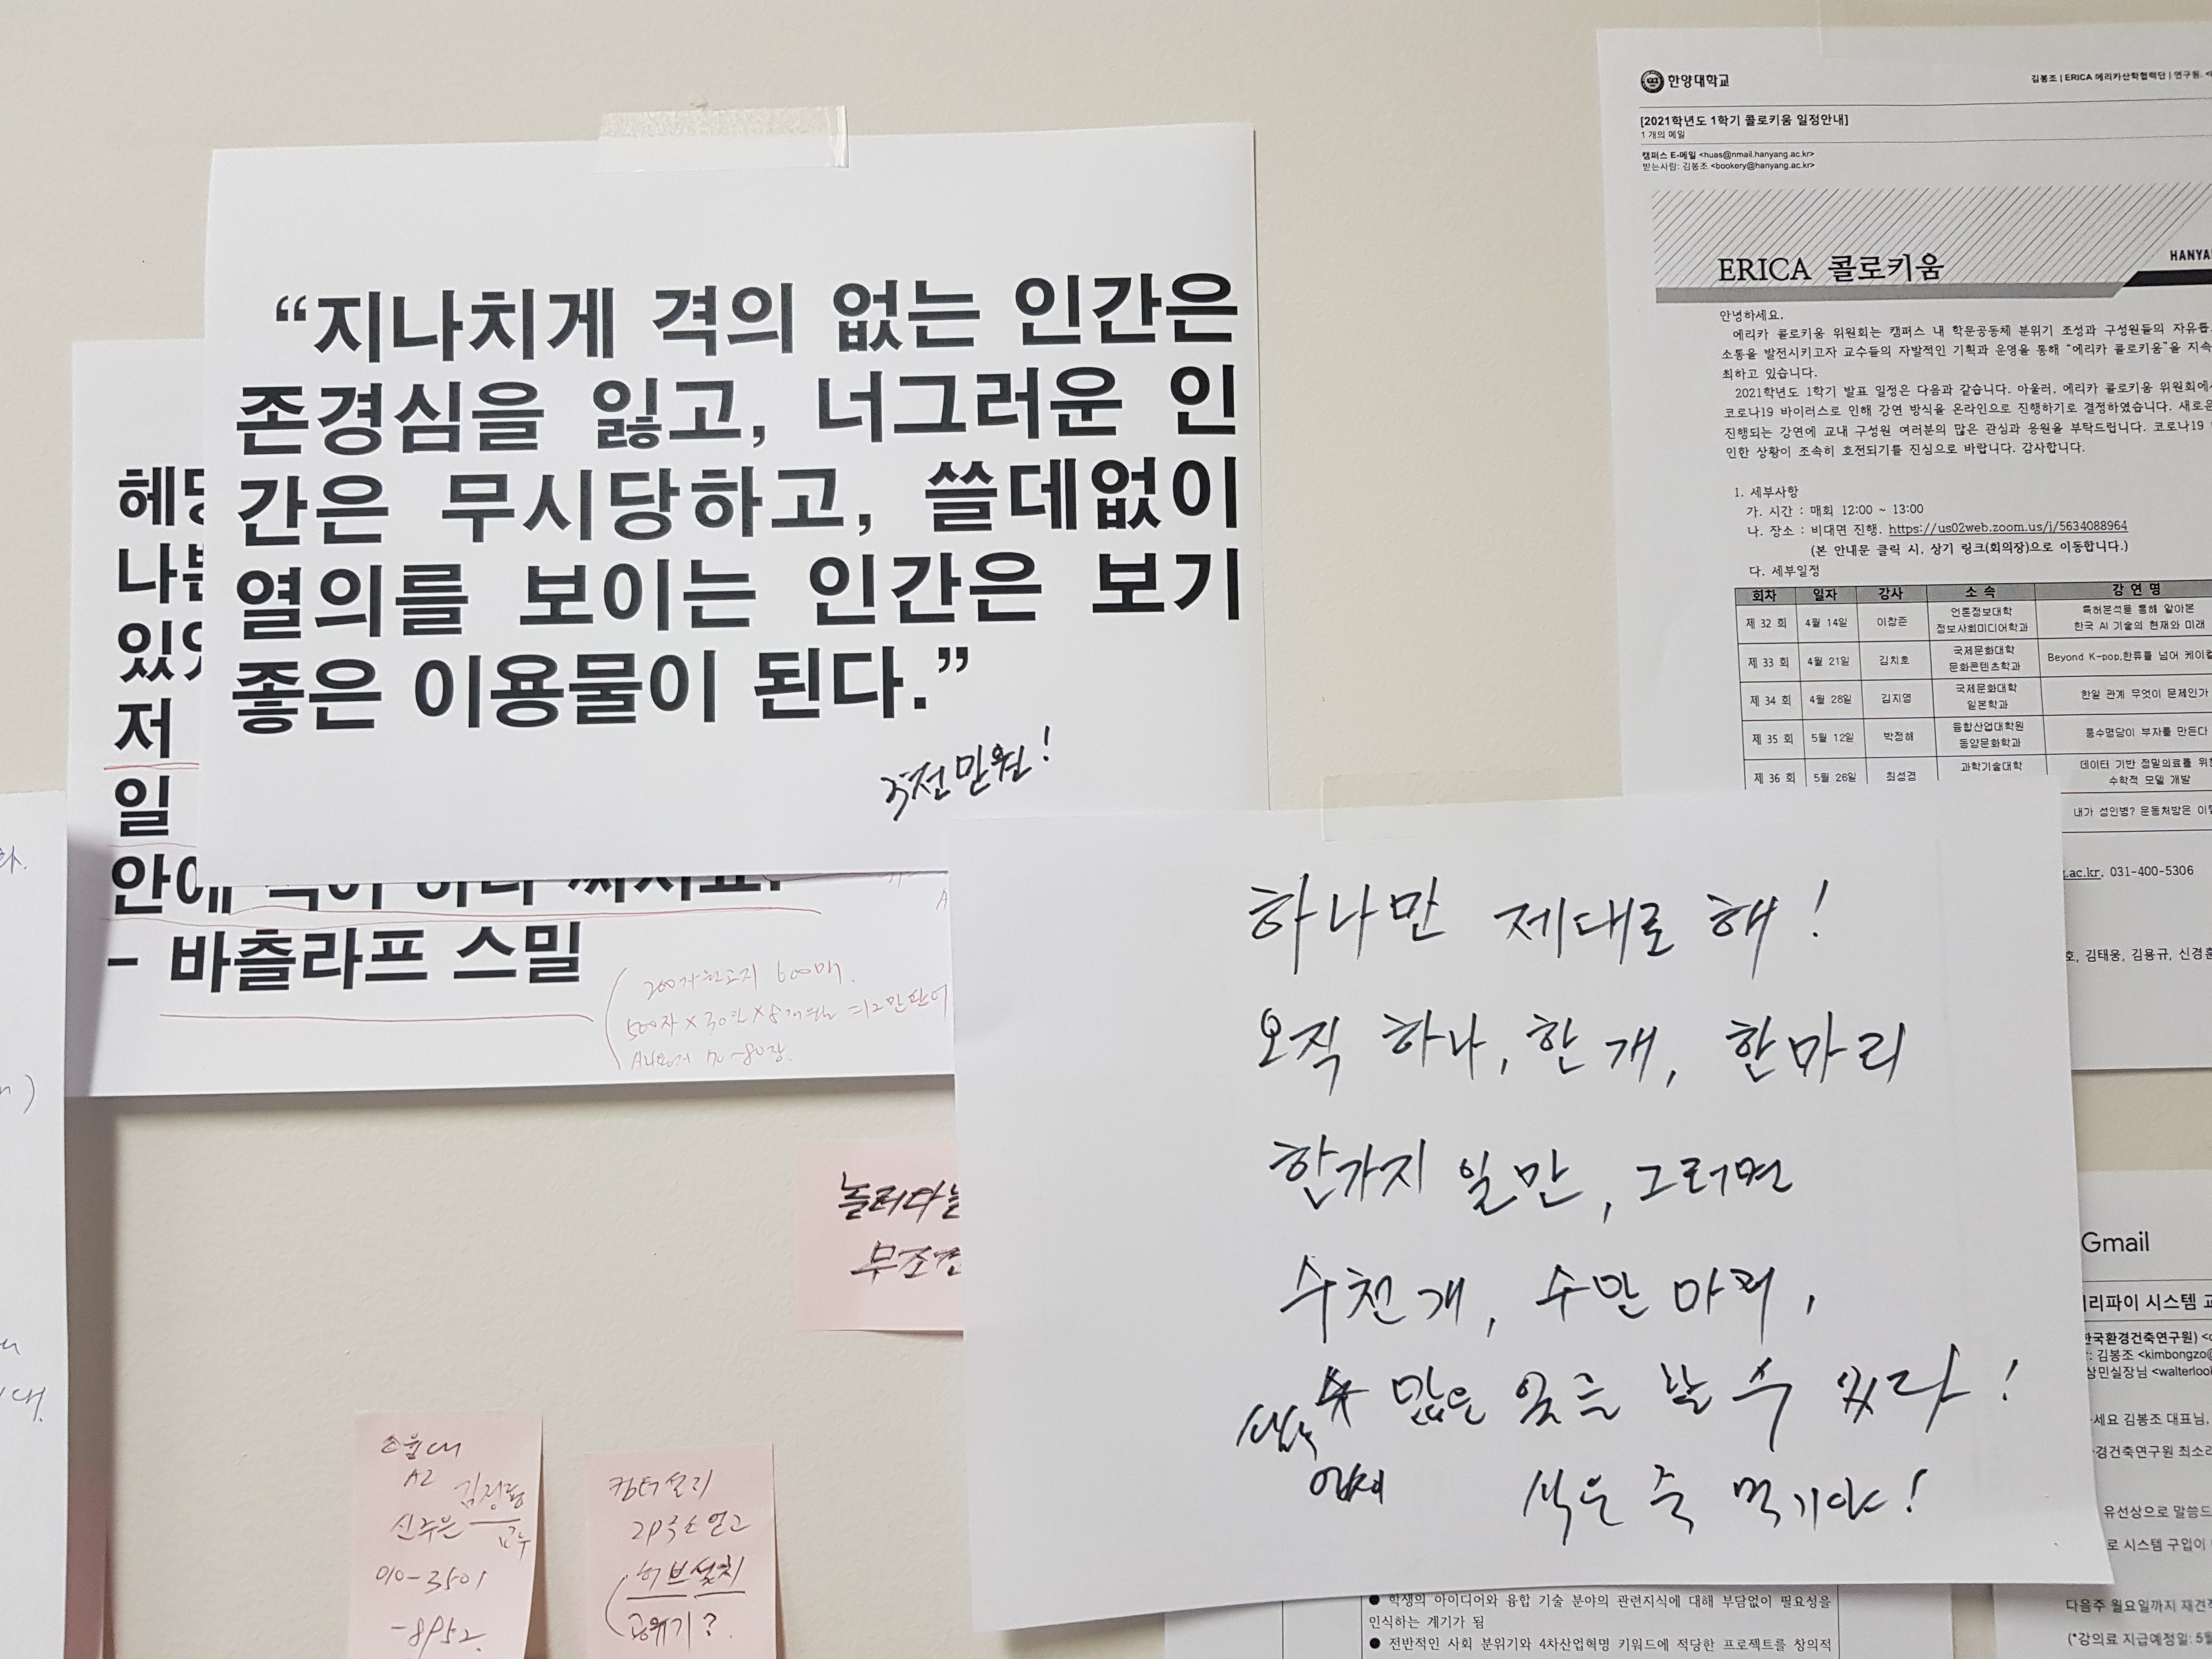 “지나치게 격의 없는 인간은
존경심을 잃고, 너그러운 인
간은 무시당하고, 쓸데없이
열의를 보이는 인간은 보기
좋은 이용물이 된다.”
3천만원!
나쁜
저
일
안에
- 바츨라프 스밀
200자 원고지 600매.
하나만 제대로 해!
오직 하나, 한 개, 한마리
한가지 일만, 그러면
수천 개, 수만 마리,
많은 일을 할 수 있다!
식은 죽 먹기야!
무조건
서울대
A2
신주은
교수
010-3501
-8952
허브설치
한양대학교
김봉조 | ERICA 에리카산학협력단 | 연구원.
[2021학년도 1학기 콜로키움 일정안내]
1 개의 메일
캠퍼스 E-메일 <huas@nmail.hanyang.ac.kr>
받는사람: 김봉조 <bookery@hanyang.ac.kr>
HANYA
ERICA 콜로키움
안녕하세요.
에리카 콜로키움 위원회는 캠퍼스 내 학문공동체 분위기 조성과 구성원들의 자유롭
소통을 발전시키고자 교수들의 자발적인 기획과 운영을 통해 “에리카 콜로키움”을 지속
최하고 있습니다.
2021학년도 1학기 발표 일정은 다음과 같습니다. 아울러, 에리카 콜로키움 위원회에서
코로나19 바이러스로 인해 강연 방식을 온라인으로 진행하기로 결정하였습니다. 새로운
진행되는 강연에 교내 구성원 여러분의 많은 관심과 응원을 부탁드립니다. 코로나19
인한 상황이 조속히 호전되기를 진심으로 바랍니다. 감사합니다.
1. 세부사항
가. 시간 : 매회 12:00 ~ 13:00
나. 장소 : 비대면 진행. https://us02web.zoom.us/j/5634088964
(본 안내문 클릭 시, 상기 링크(회의장)으로 이동합니다.)
다. 세부일정
회차 일자 강사 소 속 강 연 명
제 32 회 4월 14일 이창준 언론정보대학 정보사회미디어학과 특허분석을 통해 알아본 한국 AI 기술의 현재와 미래
제 33 회 4월 21일 김치호 국제문화대학 문화콘텐츠학과 Beyond K-pop,한류를 넘어 케이컬
제 34 회 4월 28일 김지영 국제문화대학 일본학과 한일 관계 무엇이 문제인가
제 35 회 5월 12일 박정해 융합산업대학원 동양문화학과 풍수명당이 부자를 만든다
제 36 회 5월 26일 최성경 과학기술대학 데이터 기반 정밀의료를 위한 수학적 모델 개발
내가 성인병? 운동처방은 이
.ac.kr. 031-400-5306
호, 김태웅, 김용규, 신경훈
Gmail
리파이 시스템
한국환경건축연구원)
: 김봉조 <kimbongzo@
상민실장님 <walterloo
세요 김봉조 대표님,
경건축연구원 최소
유선상으로 말씀드
로 시스템 구입이
다음주 월요일까지 재견적
(*강의료 지급예정일: 5월
● 학생의 아이디어와 융합 기술 분야의 관련지식에 대해 부담없이 필요성을
인식하는 계기가 됨
● 전반적인 사회 분위기와 4차산업혁명 키워드에 적당한 프로젝트를 창의적